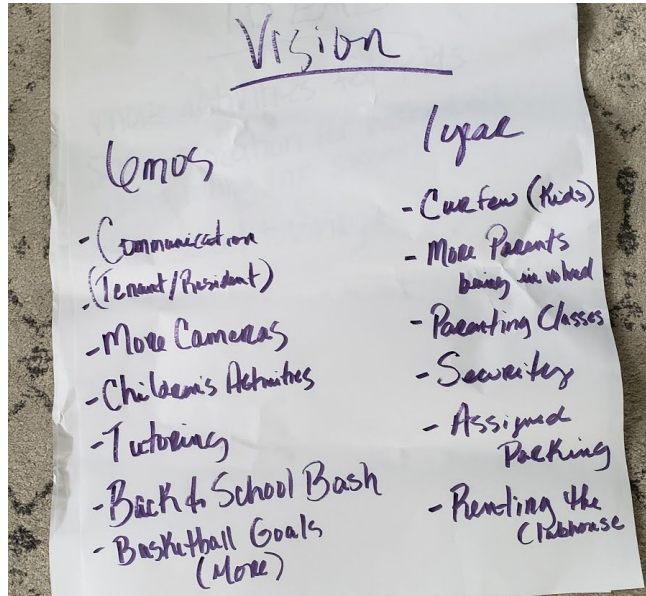 Vision
6mos
- Communication
- (Tenant/Resident)
- More Cameras
- Children's Activities
- Tutoring
- Back to School Bash
- Basketball Goals
(More)
1 year
- Curfew (Kids)
- More Parents
being involved
- Parenting Classes
- Security
- Assigned
Parking
- Renting the
Clubhouse